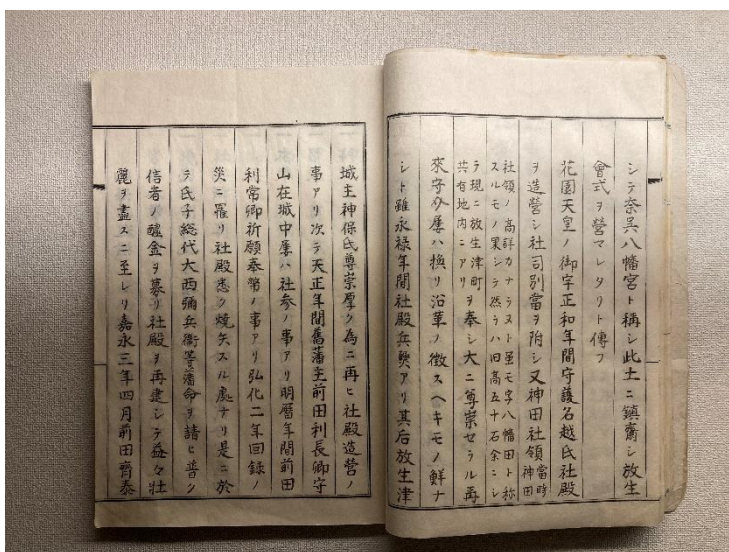 シテ奈呉八幡宮ト稱シ此土ニ鎮齋シ放生
會式ヲ營マレタリト傳フ
花園天皇ノ御宇正和年間守護名越氏社殿
ヲ造營シ社司別當ヲ附シ又神田社領當時神田
社領ノ高詳カナラスト虽モ字八幡田ト称
スルモノ果シテ然ラハ旧高五十石余ニシ
テ現ニ放生津町
共有地内ニアリヲ奉シ大ニ尊崇セラル再
來守介屡ハ換リ沿革ノ徴スヘキモノ鮮ナ
シト雖永禄年間社殿兵燹アリ其后放生津
城主神保氏尊崇厚ク為ニ再ヒ社殿造營ノ
事アリ次テ天正年間舊藩主前田利長卿守
山在城中屡ハ社参ノ事アリ明暦年間前田
利常卿祈願奉幣ノ事アリ弘化二年回録ノ
災ニ罹リ社殿悉ク焼失スル處ナリ是ニ於
テ氏子総代大西彌兵衞等藩命ヲ請ヒ普ク
信者ノ醵金ヲ募リ社殿ヲ再建シテ益々壮
麗ヲ盡スニ至レリ嘉永三年四月前田齊泰